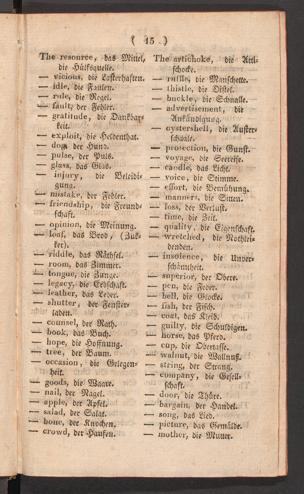 ( 15 )
The resource, das Mittel,
die Hülfsquelle.
— vicious, die Lasterhaften.
— idle, die Faulen.
— rule, die Regel.
— fault, der Fehler.
— gratitude, die Dankbar-
keit.
— exploit, die Heldenthat.
— dog, der Hund.
— pulse, der Puls.
— glass, das Glas.
— injury, die Beleidi-
gung.
— mistake, der Fehler.
— friendship, die Freund-
schaft.
— opinion, die Meinung.
— loaf, das Brod, (Zuk-
ker).
— riddle, das Räthsel.
— room, das Zimmer.
— tongue, die Zunge.
— legacy, die Erbschaft.
— leather, das Leder.
— shutter, der Fenster-
laden.
— counsel, der Rath.
— book, das Buch.
— hope, die Hoffnung.
— tree, der Baum.
— occasion, die Gelegen-
heit.
— goods, die Waare.
— nail, der Nagel.
— apple, der Apfel.
— salad, der Salat.
— bone, der Knochen.
— crowd, der Haufen.
The artichoke, die Arti-
schocke.
— ruffle, die Manschette.
— thistle, die Distel.
— buckle, die Schnalle.
— advertisement, die
Ankündigung.
— oystershell, die Auster-
schaale.
— protection, die Gunst.
— voyage, die Seereise.
— candle, das Licht.
— voice, die Stimme.
— effort, die Bemühung.
— manners, die Sitten.
— loss, der Verlust.
— time, die Zeit.
— quality, die Eigenschaft.
— wretched, die Nothlei-
denden.
— insolence, die Unver-
schämtheit.
— superior, der Obere.
— pen, die Feder.
— bell, die Glocke.
— fish, der Fisch.
— coat, das Kleid.
— guilty, die Schuldigen.
— horse, das Pferd.
— cup, die Obertasse.
— walnut, die Wallnuß.
— string, der Strang.
— company, die Gesell-
schaft.
— door, die Thüre.
— bargain, der Handel.
— song, das Lied.
— picture, das Gemälde.
— mother, die Mutter.